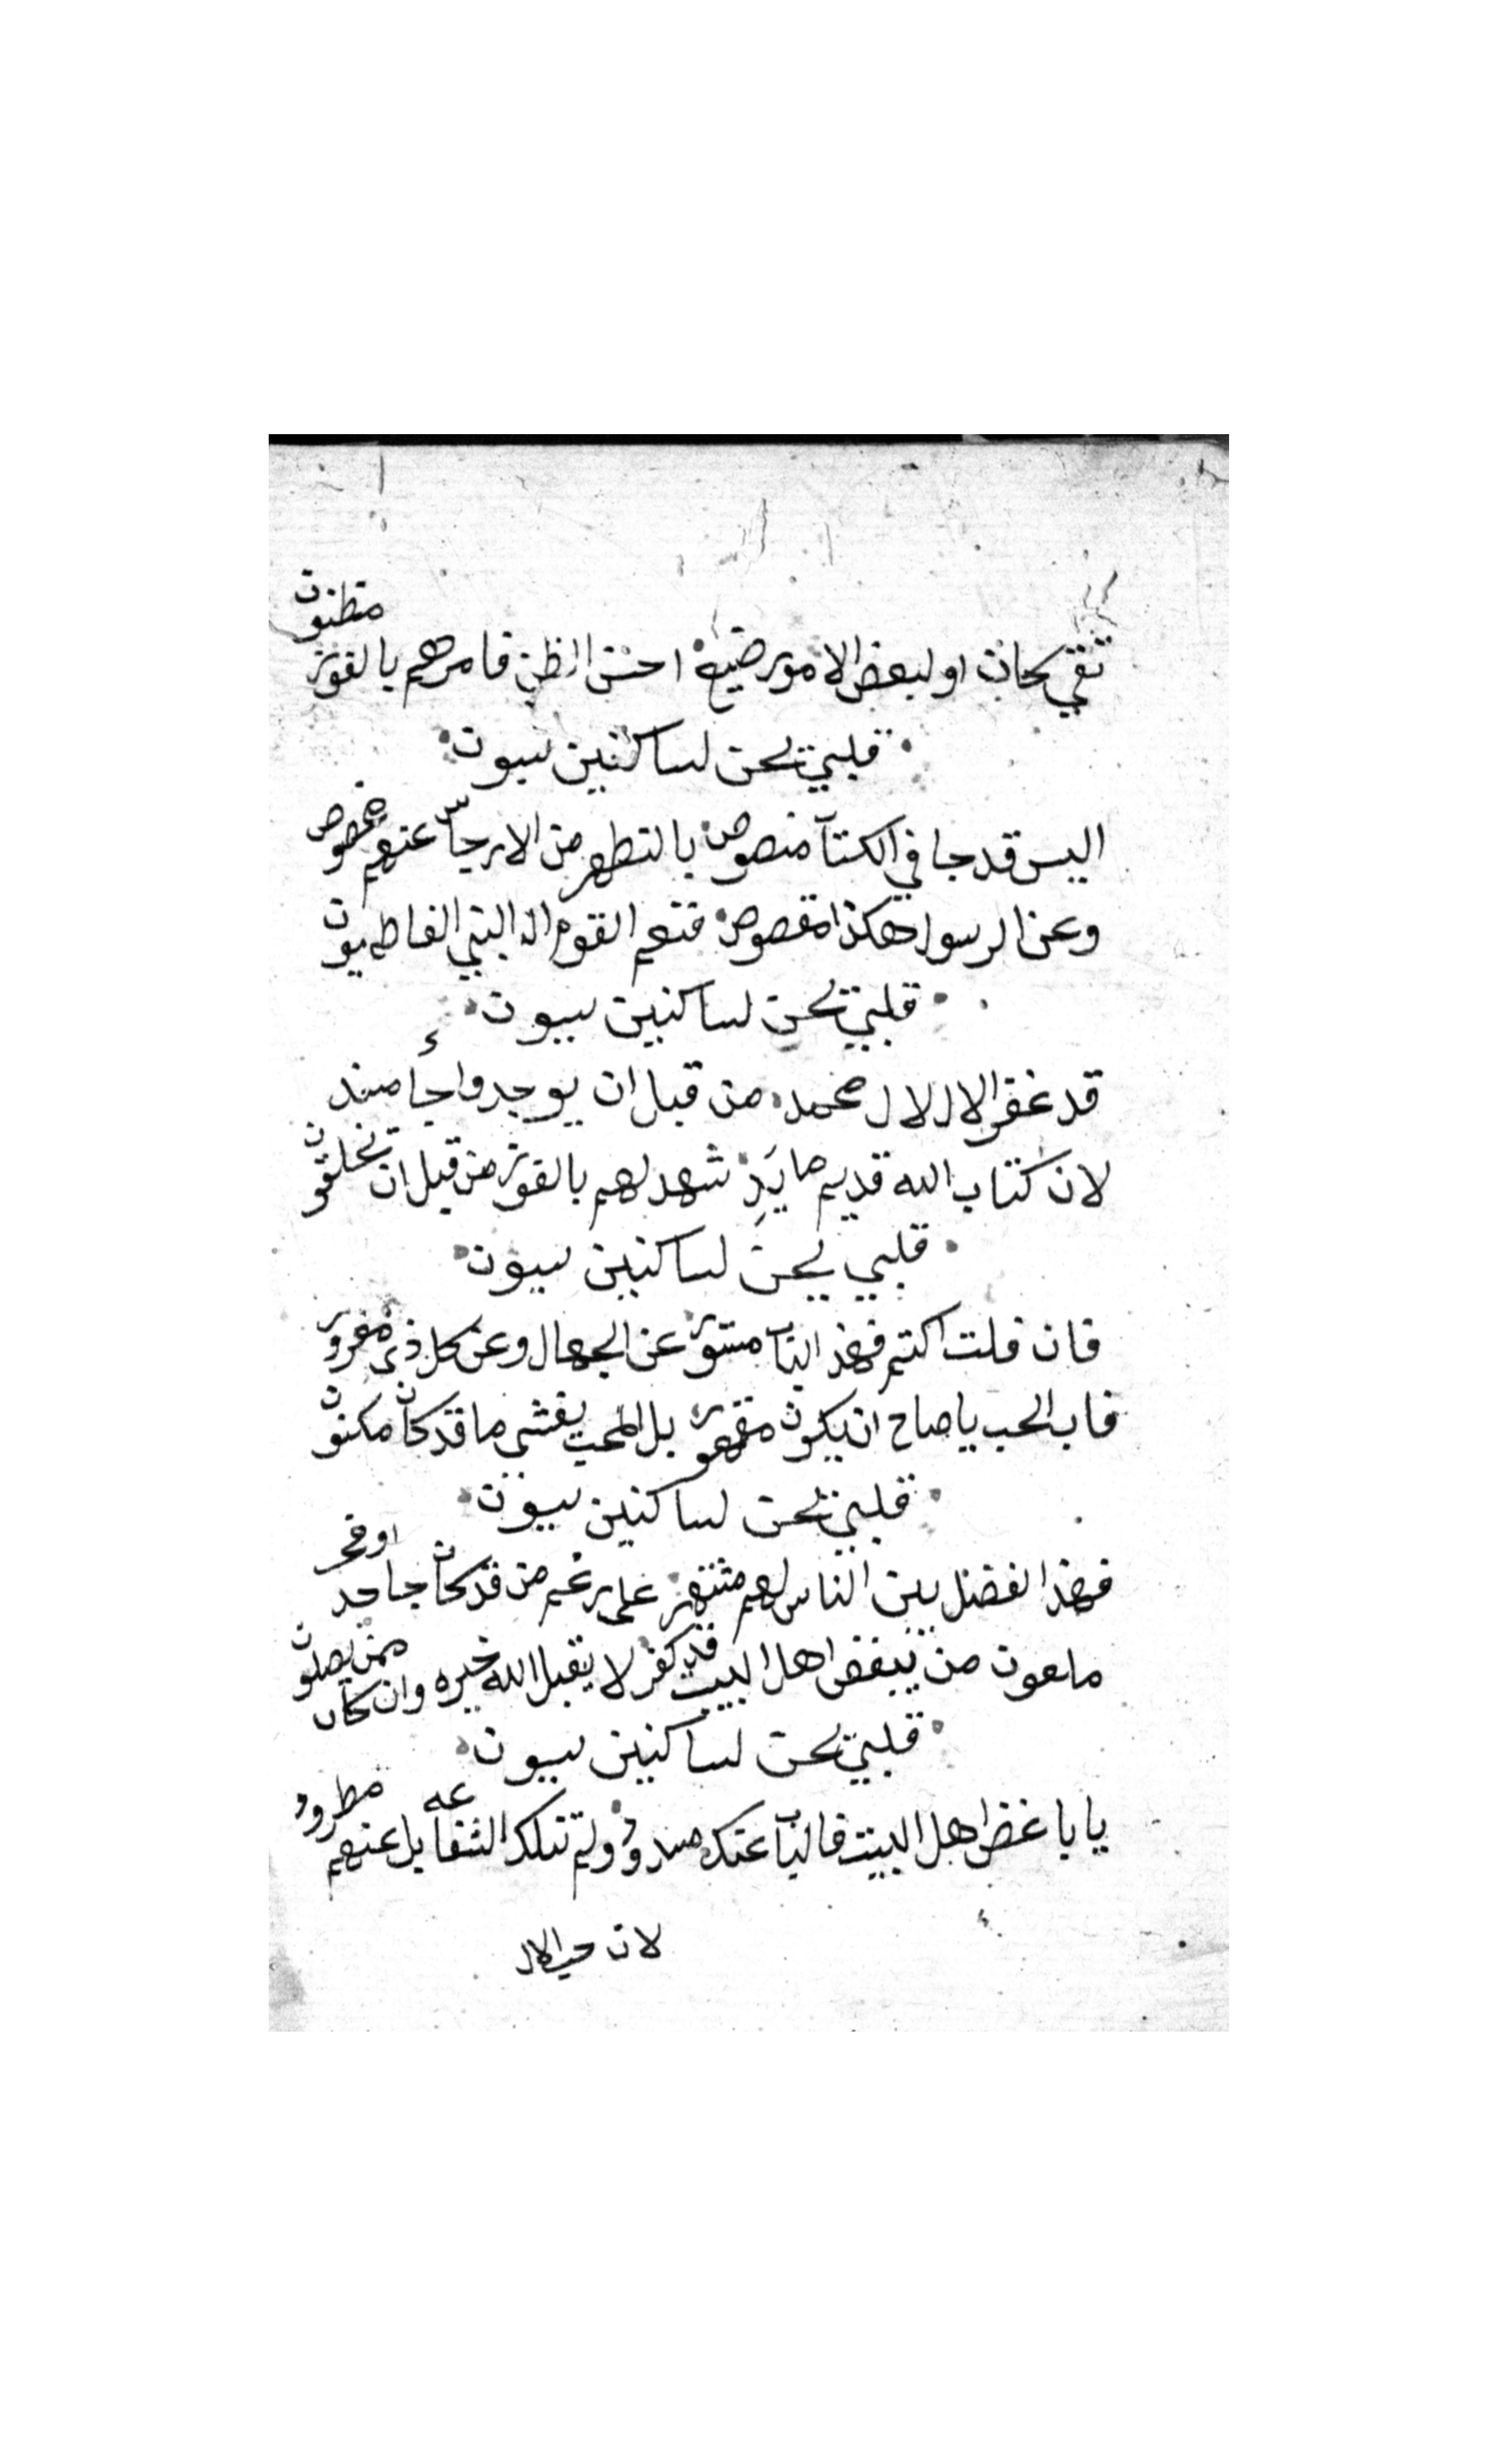 تقي كان او لبعض الامور ضيع احسن الظن فامرهم بالفوز مظنون
قلبي يحن لساكنين سيون
اليس قد جا في الكتاب منصوص بالتطهر من الارجاس عنهم مخصوص
وعن الرسول هكذا مقصوص فنعم القوم ال النبي الفاطميون
قلبي يحن لساكنين سيون
قد غفر الاله لال محمد من قبل ان يوجدوا جاء
لان كتاب الله قديم شهد لهم بالفوز من قبل ان تخلقون
قلبي يحن لساكنين سيون
فان قلت اكتم فهذا الباب مستور عن الجهال وعن كل ذي مغرور
فاب الحب يا صاح ان يكون مقهور بل المحب يفشي ما قد كان مكنون
قلبي يحن لساكنين سيون
فهذا الفضل بين الناس لهم مشتهر على رغم من قد كان جاحد او
ملعون من يبغض اهل البيت قد كفر لا يقبل الله خيره وان كان ممن يصلون
قلبي يحن لساكنين سيون
يا باغض اهل البيت فالباب عنك مسدود ولم تنلك الشفاعه بل عنهم مطرود
لان حب الال